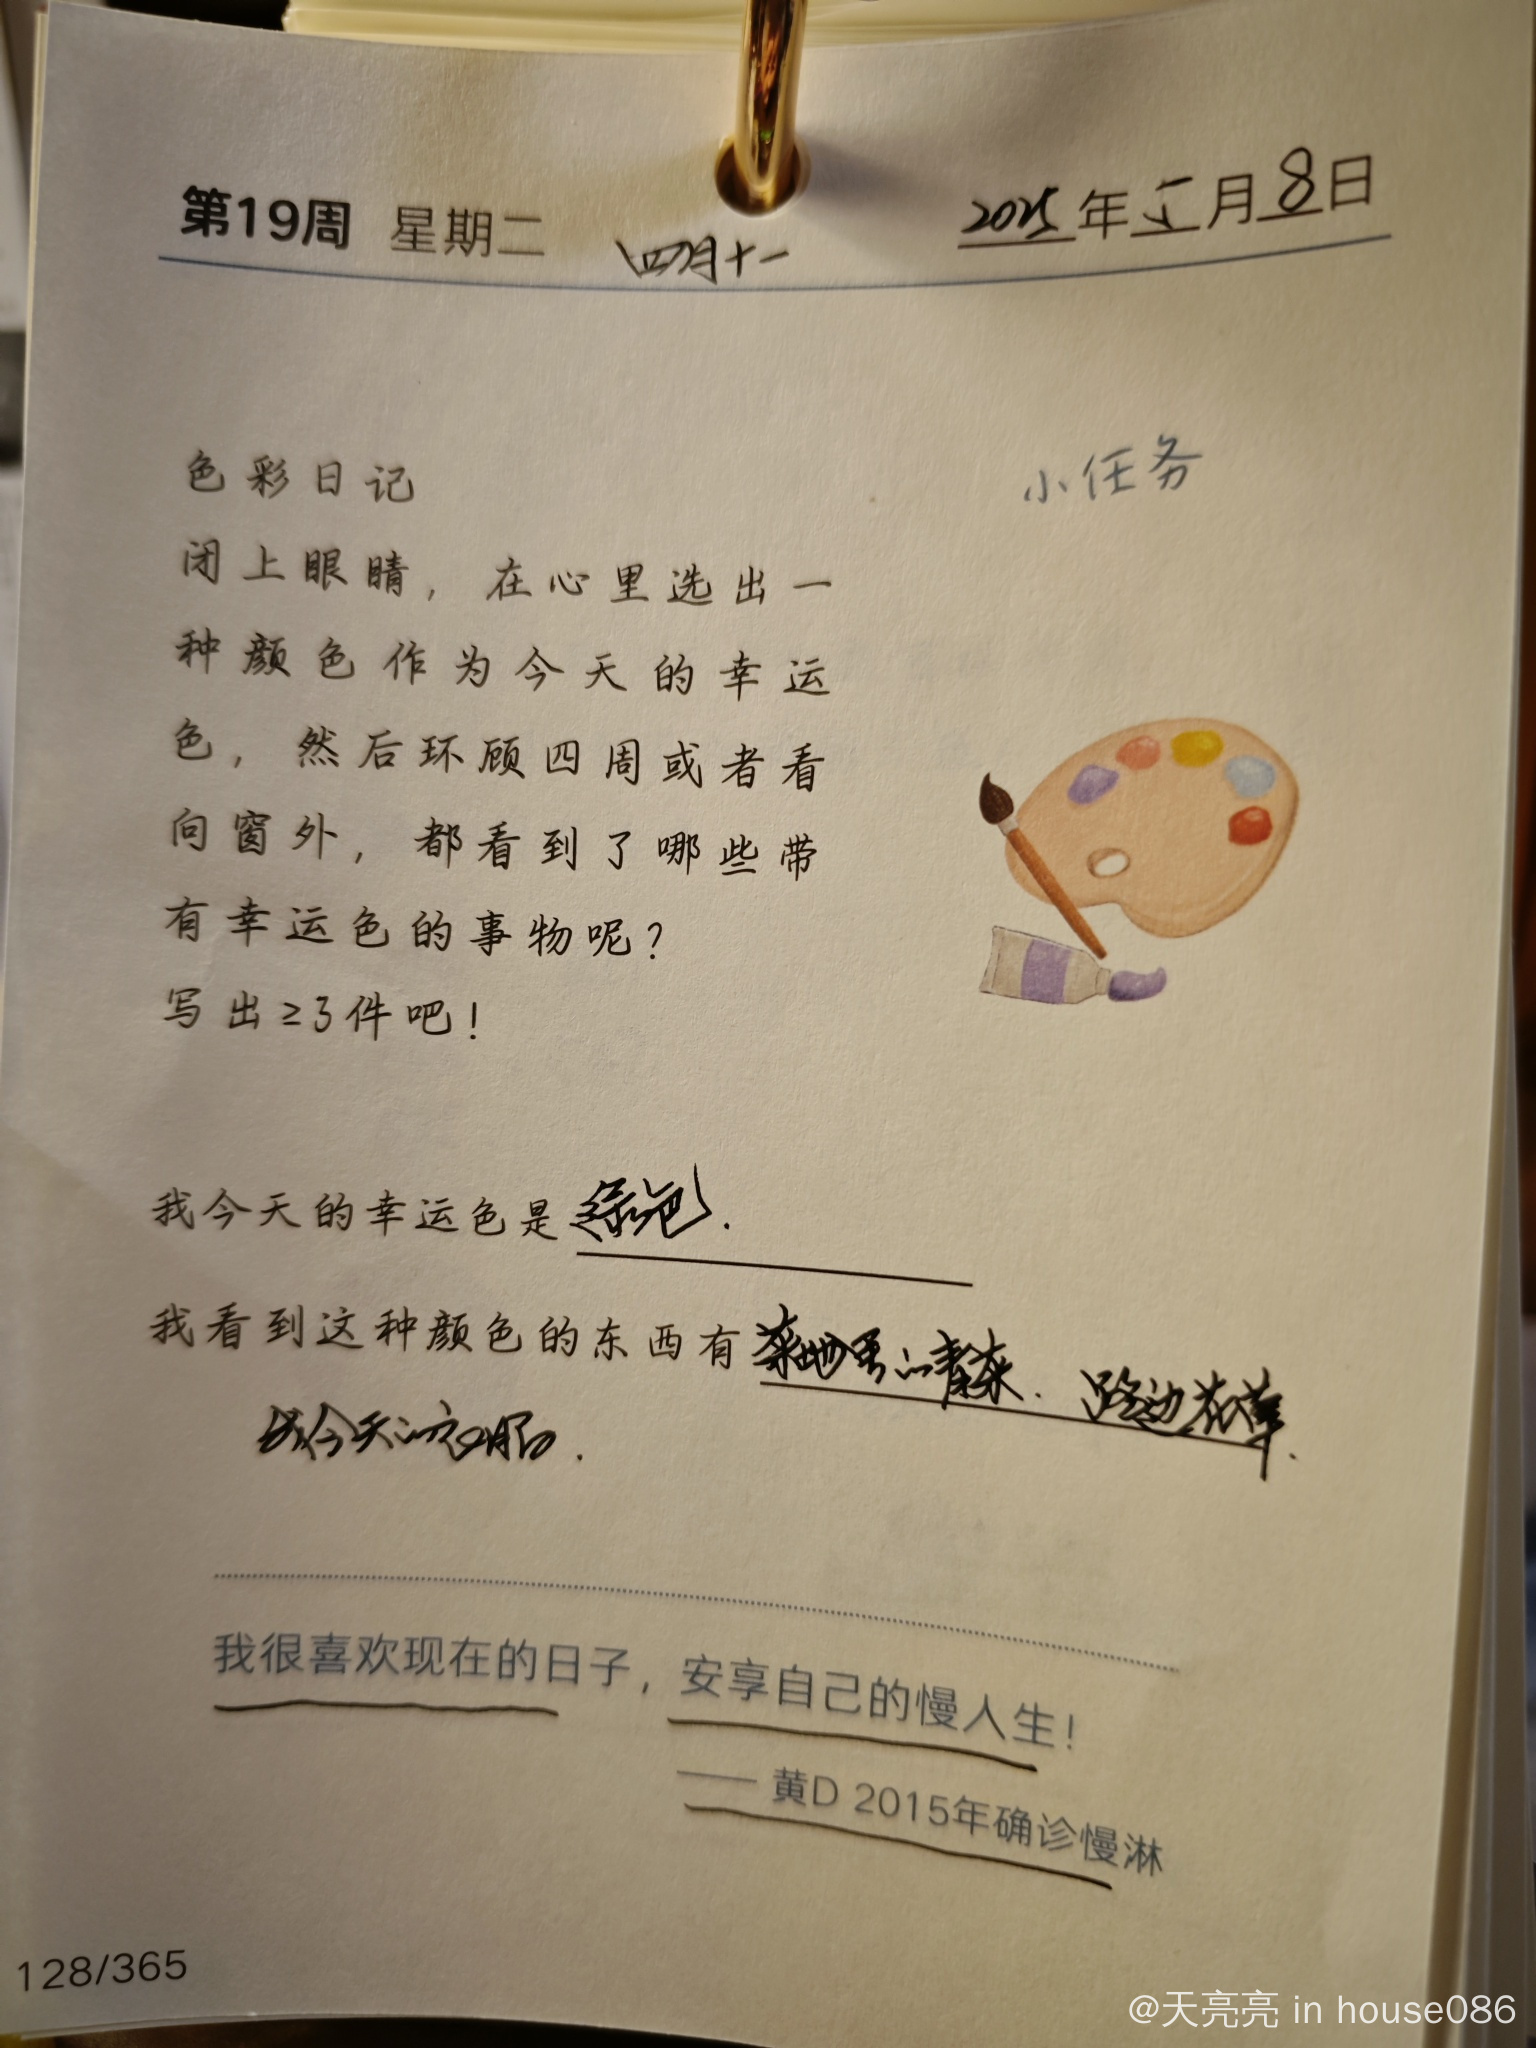 第19周 星期二 四月十一 2025年五月8日
色彩日记
小任务
闭上眼睛，在心里选出一
种颜色作为今天的幸运
色，然后环顾四周或者看
向窗外，都看到了哪些带
有幸运色的事物呢？
写出≥3件吧！
我今天的幸运色是绿色.
我看到这种颜色的东西有菜地里的青菜. 路边花草.
我今天的衣服.
我很喜欢现在的日子，安享自己的慢人生！
—— 黄D 2015年确诊慢淋
128/365
@天亮亮 in house086